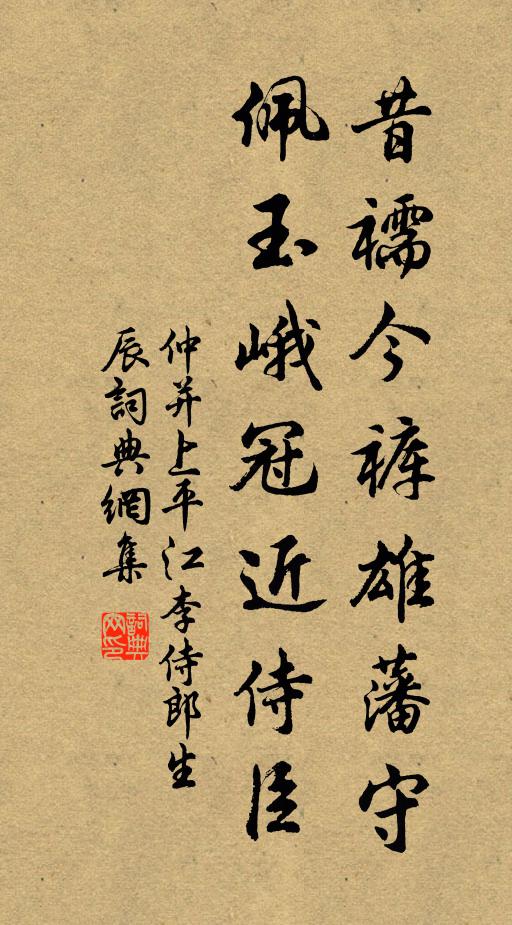 昔襦今褲雄藩守
佩玉峨冠近侍臣
仲并上平江李侍郎生
辰詞典網集
詞典網印